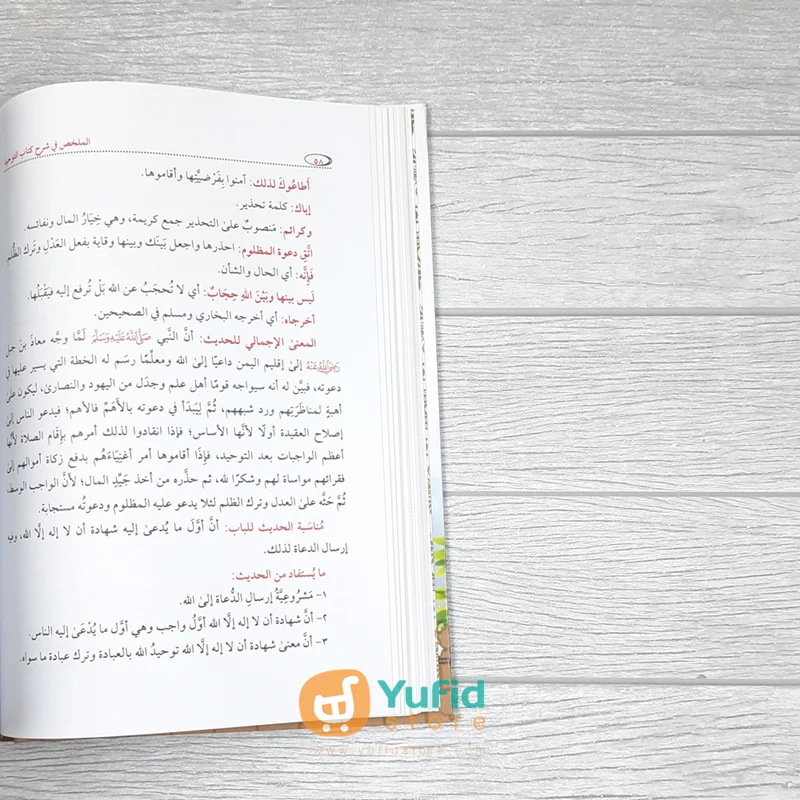 الملخص في شرح كتاب التوحيد
٥٨
أَطاعُوكَ لذلك: آمنوا بِفَرْضيَّتِها وأقاموها.
إياك: كلمة تحذير.
وكرائم: مَنصوبٌ على التحذير جمع كريمة، وهي خِيَارُ المال ونفائسه.
اتَّقِ دعوة المظلوم: احذرها واجعل بَينَك وبينها وقاية بفعل العَدْلِ وتَرك الظُّلم
فَإِنَّه: أي الحال والشأن.
لَيس بينها وبَيْنَ اللهِ حِجَابٌ: أي لا تُحجَبُ عن الله بَلْ تُرفع إليه فيَقْبَلُها.
أخرجاه: أي أخرجه البخاري ومسلم في الصحيحين.
المعنى الإجمالي للحديث: أنَّ النَّبي صَلَّى اللَّهُ عَلَيْهِ وَسَلَّمَ لَمَّا وجَّه معاذَ بنَ جبل
رَضِيَ اللَّهُ عَنْهُ إلى إقليم اليمن داعيًا إلى الله ومعلِّمًا رسَم له الخطة التي يسير عليها في
دعوته، فبيَّن له أنه سيواجه قومًا أهل علم وجدَل من اليهود والنصارى، ليكون على
أهبةٍ لمناظَرَتِهم ورد شبههم، ثُمَّ لِيَبْدَأ في دعوته بالأهَمِّ فالأهم؛ فيدعو الناس إلى
إصلاح العقيدة أولًا لأنَّها الأساس؛ فإذا انقادوا لذلك أمرهم بإقَام الصلاة لأنَّها
أعظم الواجبات بعد التوحيد، فإِذَا أقاموها أمر أغنِيَاءَهُم بدفع زكاة أموالهم إلى
فقرائهم مواساة لهم وشكرًا لله، ثم حذَّره من أخذ جَيِّدِ المال؛ لأنَّ الواجب الوسط،
ثُمَّ حَثَّه على العدل وترك الظلم لئلا يدعو عليه المظلوم ودعوتُه مستجابة.
مُناسَبة الحديث للباب: أنَّ أوَّلَ ما يُدعَى إليه شهادة أن لا إله إلَّا الله، وفيه
إرسال الدعاة لذلك.
ما يُستفاد من الحديث:
١- مَشرُوعِيَّةُ إرسالِ الدُّعاة إلى الله.
٢- أنَّ شهادة أن لا إله إلَّا الله أوَّلُ واجب وهي أوَّل ما يُدْعَى إليه الناس.
٣- أنَّ معنى شهادة أن لا إله إلَّا الله توحيدُ الله بالعبادة وترك عبادة ما سواه.
Yufid
store
www.yufidstore.com